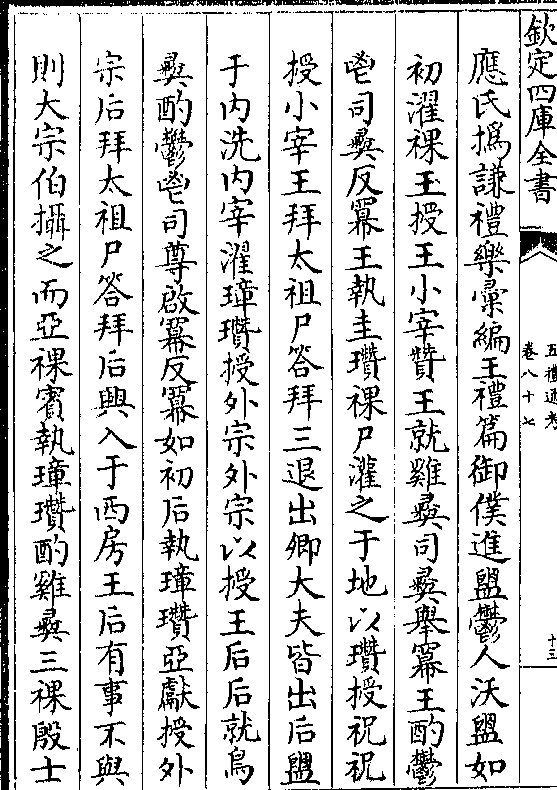 欽定四庫全書
五禮通考
卷八十七
十三
應氏撝謙禮樂彙編王禮篇御僕進盥鬱人沃盥如
初濯祼玉授王小宰贊王就雞彝司彝舉冪王酌鬱
鬯司彝反冪王執圭瓉祼尸灌之于地以瓉授祝祝
授小宰王拜太祖尸答拜三退出卿大夫皆出后盥
于内洗内宰濯璋瓉授外宗外宗以授王后后就鳥
彝酌鬱鬯司尊啟冪反冪如初后執璋瓉亞獻授外
宗后拜太祖尸答拜后興入于西房王后有事不與
則大宗伯攝之而亞祼賓執璋瓉酌雞彝三祼殷士